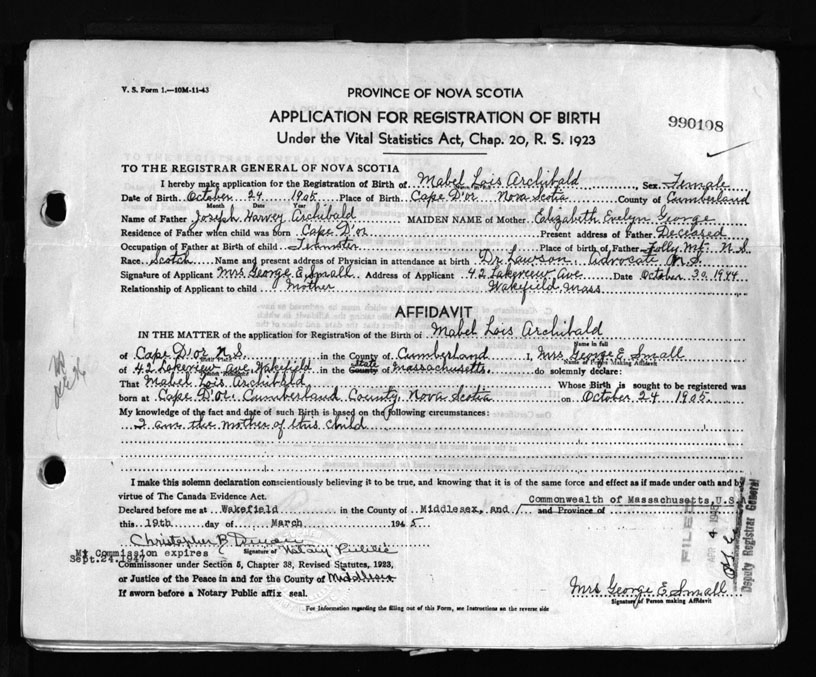 V. S. Form 1.—10M-11-43
PROVINCE OF NOVA SCOTIA
APPLICATION FOR REGISTRATION OF BIRTH
990108
Under the Vital Statistics Act, Chap. 20, R. S. 1923
TO THE REGISTRAR GENERAL OF NOVA SCOTIA
I hereby make application for the Registration of Birth of Mabel Lois Archibald, Sex Female
Date of Birth October 24 1905 Place of Birth Cape D'or Nova Scotia County of Cumberland
Month Date Year
Name of Father Joseph Harvey Archibald MAIDEN NAME of Mother Elizabeth Evelyn George
Residence of Father when child was born Cape D'or Present address of Father Deceased
Occupation of Father at Birth of child Teamster Place of birth of Father Folly Mt. N.S.
Race Scotch Name and present address of Physician in attendance at birth Dr Lawson Advocate N.S.
Signature of Applicant Mrs George E. Small Address of Applicant 42 Lakeview Ave Date October 30 1944
Relationship of Applicant to child Mother Wakefield Mass
AFFIDAVIT
IN THE MATTER of the application for Registration of the Birth of Mabel Lois Archibald
Name in full
of Cape D'or N.S. in the County of Cumberland I, Mrs George E Small
Name of Person making Affidavit
of 42 Lakeview Ave Wakefield in the County State of Massachusetts do solemnly declare:
That Mabel Lois Archibald Whose Birth is sought to be registered was
born at Cape D'or, Cumberland County, Nova Scotia on October 24 1905.
My knowledge of the fact and date of such Birth is based on the following circumstances:
I am the mother of this child
I make this solemn declaration conscientiously believing it to be true, and knowing that it is of the same force and effect as if made under oath and by
virtue of The Canada Evidence Act.
Commonwealth of Massachusetts, U.S.A
Declared before me at Wakefield in the County of Middlesex, and / and Province of
this 19th day of March 1945
Christopher B.
My Commission expires Signature of Notary Public
Sept.24.1947
Commissioner under Section 5, Chapter 38, Revised Statutes, 1923,
or Justice of the Peace in and for the County of Middlesex
If sworn before a Notary Public affix seal.
Mrs George E Small
Signature of Person making Affidavit
For Information regarding the filling out of this Form, see Instructions on the reverse side
FILED
APR 4 1945
Deputy Registrar General